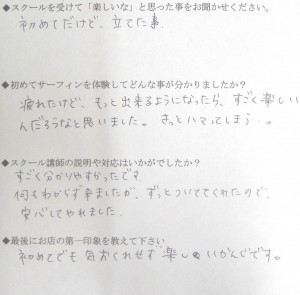 ◆スクールを受けて「楽しいな」と思った事をお聞かせください。
初めてだけど、立てた事
◆初めてサーフィンを体験してどんな事が分かりましたか？
疲れたけど、もっと出来るようになったら、すごく楽しい
んだろうなと思いました。きっとハマってしまう…。
◆スクール講師の説明や対応はいかがでしたか？
すごく分かりやすかったです。
何もわからず来ましたが、ずっとついててくれたので、
安心してやれました。
◆最後にお店の第一印象を教えて下さい
初めてでも気おくれせず楽しいかんじです。